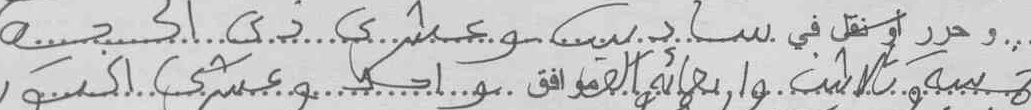 و حرر أو نقل في سادس وعشري ذي الحجة
سنة وثلاث واربعمائة الموافق واحد وعشري اكتوبر